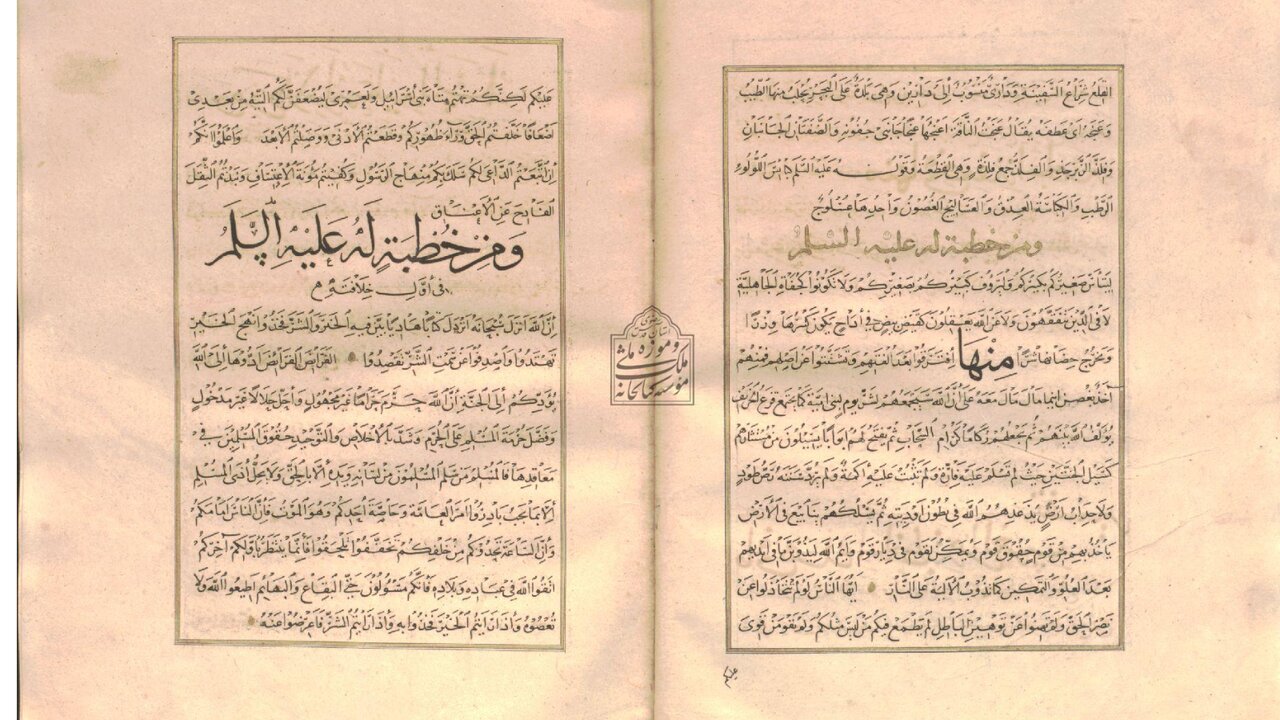 القلع شراع السفينة وداري منسوب الى دارين وهي بلدة على البحر يجلب منها الطيب
وعنجه اي عطفه يقال عنجت الناقة اعنجها عنجا جانبي جفونه والضفتان الجانبان
وفلذ الزبرجد والفلذ جمع فلذة وهي القطعة وقوله عليه السلم كبائس اللؤلؤ
الرطب والكباسة العذق والعساليج الغصون واحدها عسلوج
ومن خطبة له عليه السلم
ليتأس صغيركم بكبيركم وليرؤف كبيركم بصغيركم ولا تكونوا كجفاة الجاهلية
لا في الدين تتفقهون ولا عن الله تعقلون كقيض بيض في اداح يكون كسرها وزرا
ويخرج حضانها شرا منها افترقوا بعد الفتهم وتشتتوا عن اصلهم فمنهم
اخذ بغصن اينما مال مال معه على ان الله سيجمعهم لشر يوم لبني امية كما يجتمع قزع الخريف
يؤلف الله بينهم ثم يجعلهم ركاما كركام السحاب ثم يفتح لهم ابوابا يسيلون من مستثارهم
كسيل الجنتين حيث لم تسلم عليه قارة ولم تثبت عليه اكمة ولم يرد سننه رص طود
ولا حداب ارض يذعذعهم الله في بطون اوديته ثم يسلكهم ينابيع في الارض
يأخذ بهم من قوم حقوق قوم ويمكن لقوم في ديار قوم وايم الله ليذوبن ما في ايديهم
بعد العلو والتمكين كما تذوب الالية على النار ايها الناس لو لم تتخاذلوا عن
نصر الحق ولم تهنوا عن توهين الباطل لم يطمع فيكم من ليس مثلكم ولم يقو من قوى
عليكم
عليكم لكنكم تهتم متاه بني اسرائيل ولعمري ليضعفن لكم التيه من بعدي
اضعافا خلفتم الحق وراء ظهوركم وقطعتم الادنى ووصلتم الابعد واعلموا انكم
ان اتبعتم الداعي لكم سلك بكم منهاج الرسول وكفيتم مؤنة الاعتساف ونبذتم الثقل
الفادح عن الاعناق
ومن خطبة له عليه السلم
في اول خلافته
ان الله انزل سبحانه انزل كتابا هاديا بين فيه الخير والشر فخذوا نهج الخير
تهتدوا واصدفوا عن سمت الشر تقصدوا الفرائض الفرائض ادوها الى الله
تؤدكم الى الجنة ان الله حرم حراما غير مجهول واحل حلالا غير مدخول
وفضل حرمة المسلم على الحرم وشد بالاخلاص والتوحيد حقوق المسلمين في
معاقدها فالمسلم من سلم المسلمون من لسانه ويده الا بالحق ولا يحل اذى المسلم
الا بما يجب بادروا امر العامة وخاصة احدكم وهو الموت فان الناس امامكم
وان الساعة تحدوكم من خلفكم تخففوا تلحقوا فانما ينتظر باولكم اخركم
اتقوا الله في عباده وبلاده فانكم مسئولون حتى البقاع والبهائم اطيعوا الله ولا
تعصوه واذا رأيتم الخير فخذوا به واذا رأيتم الشر فاعرضوا عنه
وموزه ملی
ملک
مؤسسه کتابخانه